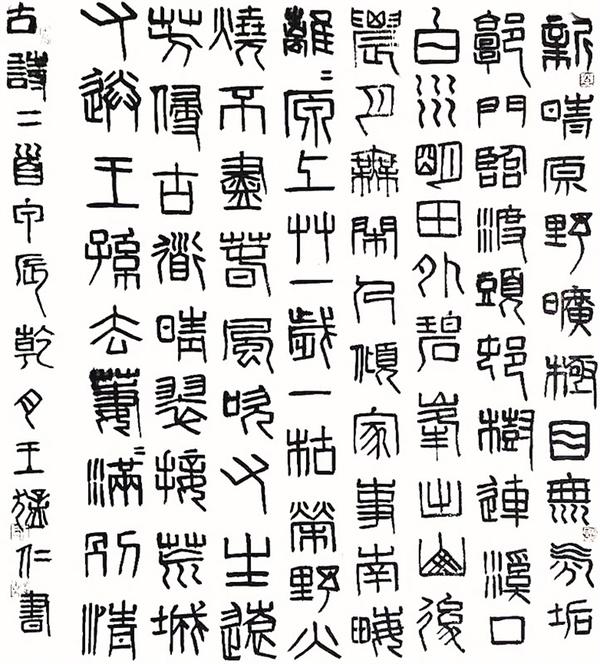 新晴原野曠極目無氛垢
郭門臨渡頭邨樹連溪口
白水明田外碧峯出山後
農月無閒人傾家事南畮
離〻原上艸一歲一枯榮野火
燒不盡春風吹又生遠
芳侵古道晴翠接荒城
又送王孫去萋〻滿別情
古詩二首甲辰乾月王猛仁書